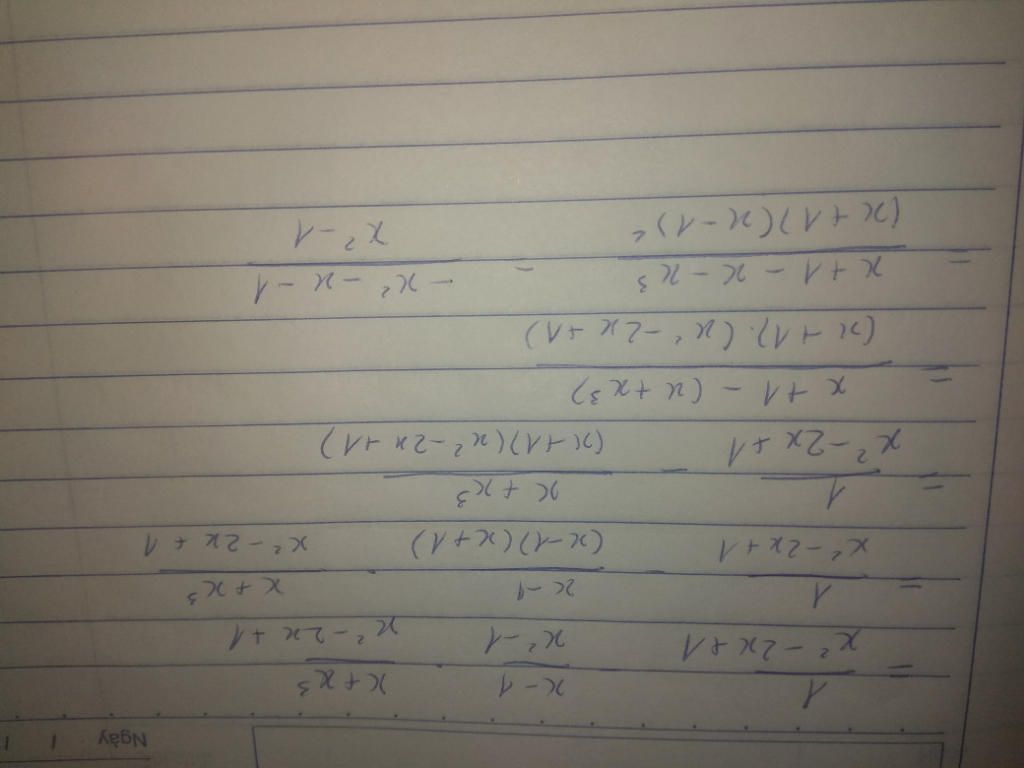 Ngày / /
= 1/(x² - 2x + 1) - (x - 1)/(x² - 1) · (x + x³)/(x² - 2x + 1)
= 1/(x² - 2x + 1) - (x - 1)/((x - 1)(x + 1)) · (x + x³)/(x² - 2x + 1)
= 1/(x² - 2x + 1) - (x + x³)/((x + 1)(x² - 2x + 1))
= (x + 1 - (x + x³))/((x + 1).(x² - 2x + 1))
= (x + 1 - x - x³)/((x + 1)(x - 1)²) = (-x² - x - 1)/(x² - 1)